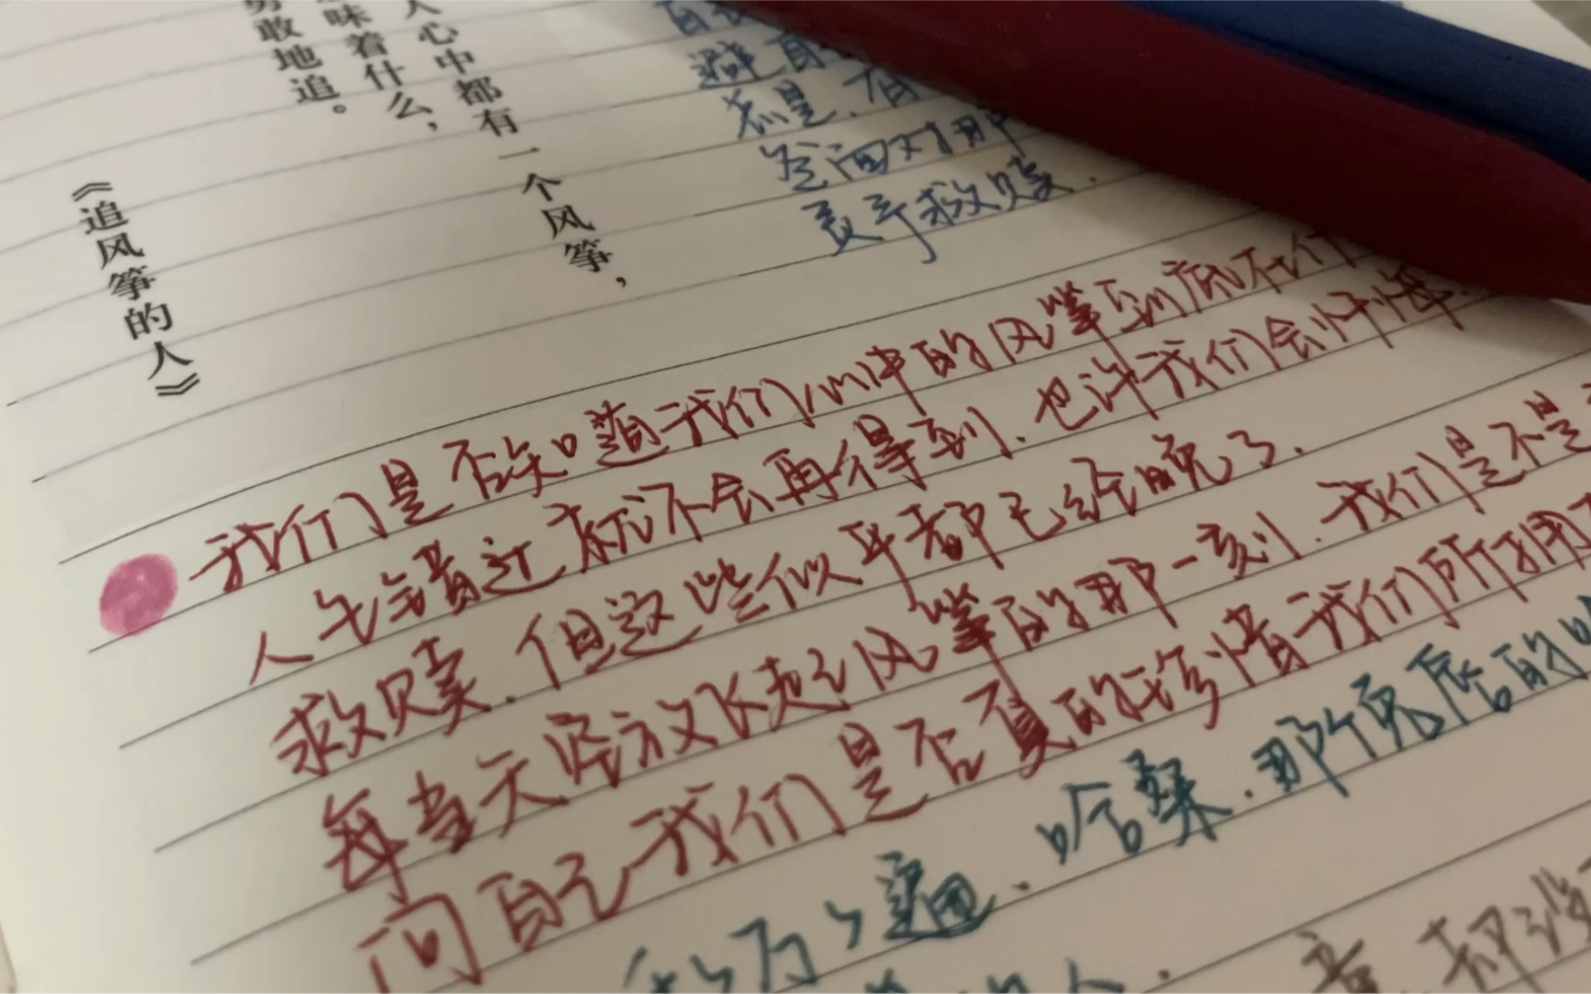 人心中都有一个风筝，
味着什么，
勇敢地追。
《追风筝的人》
避
若是，有
面对那
灵于救赎.
我们是否知道我们心中的风筝到底在何
人生错过就不会再得到.也许我们会忏悔.
救赎.但这些似乎都已经晚了.
每当天空放飞起风筝的那一刻.我们是不是
问自己，我们是否真的珍惜我们所拥
千万遍.哈桑.那个兔唇的